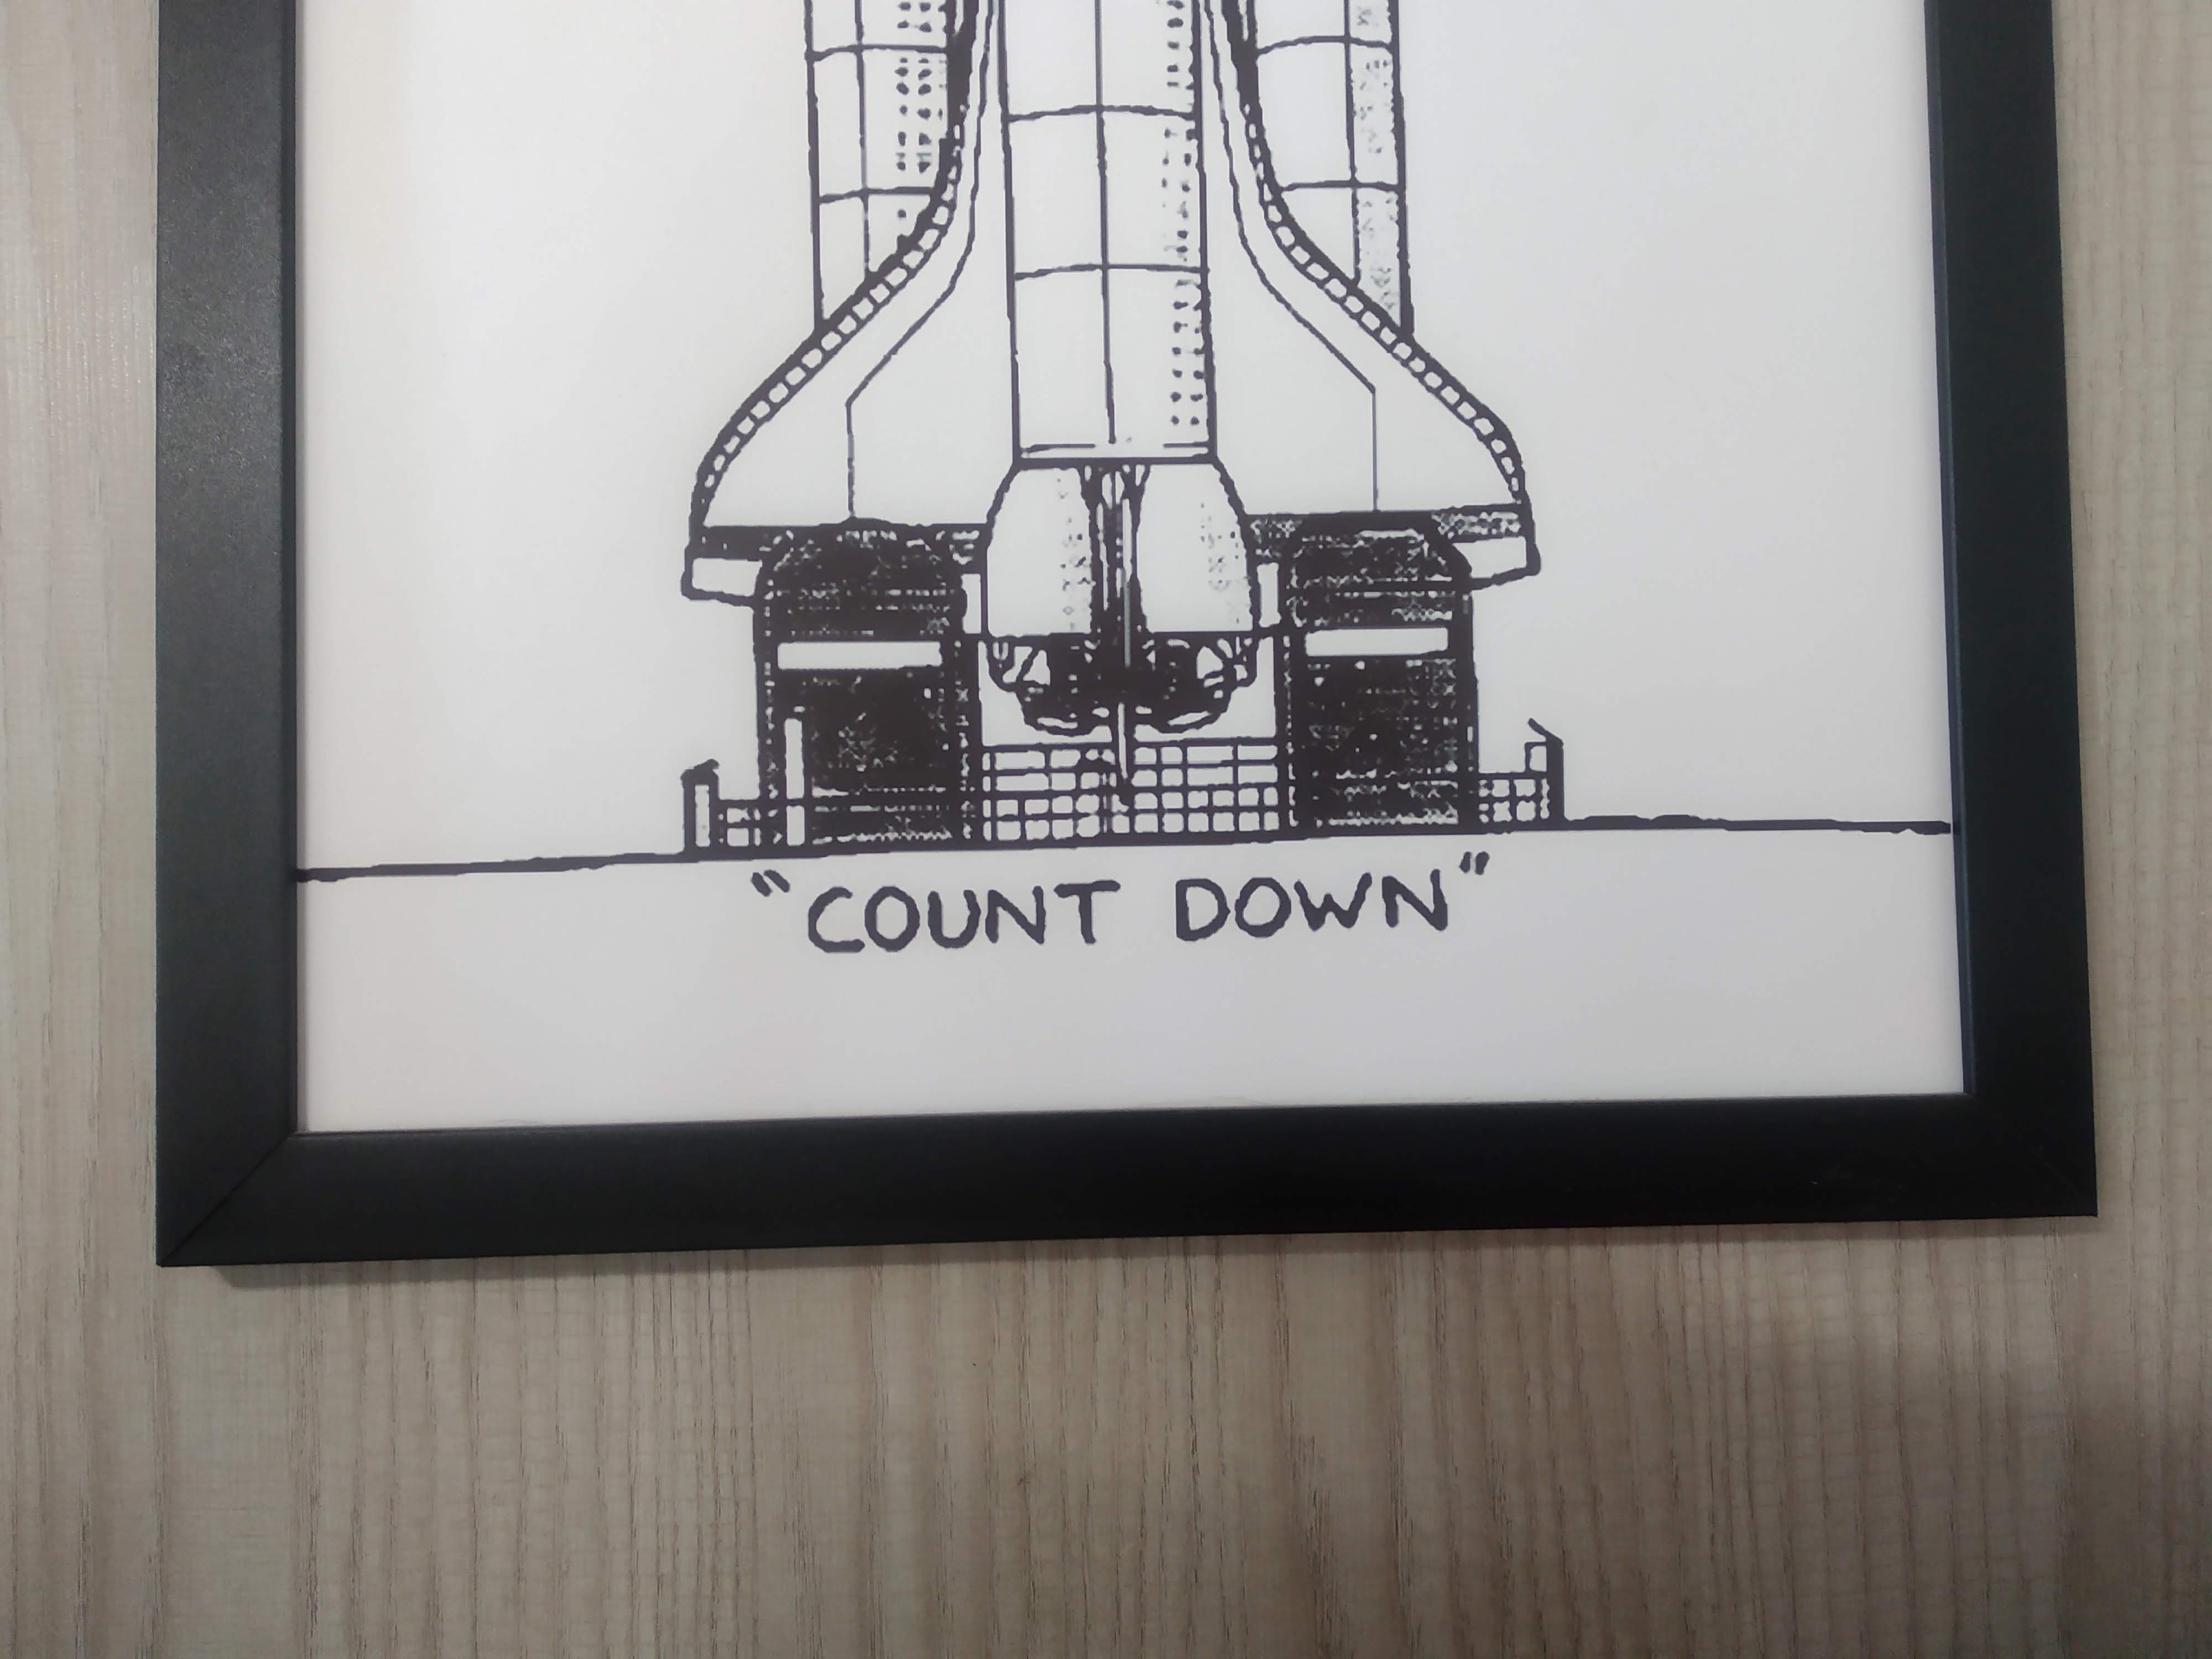 "COUNT DOWN"